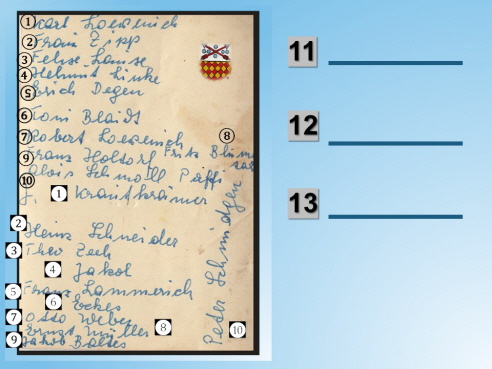 ① Karl Loewenich
② Franz Zipp
③ Felise Lause
④ Helmut Linke
⑤ Erich Degen
⑥ Toni Blaidt
⑦ Robert Loewenich
⑧
⑨ Franz Holtorf Fritz
⑩ Alois Schmoll Paffi
J. 1 Krautkrämer
2 Heinz Schneider
3 Theo Zech
4 Jakob
5 Franz Lammerich
6 Eckes
7 Otto Weber
Ernst Müller 8
9 Jakob Baltes
10 Peter Schmidgen
11
12
13